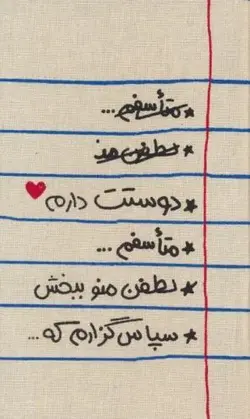 * متأسفم ...
* لطفن من
* دوستت دارم
* متأسفم ...
* لطفن منو ببخش
* سپاس‌گزارم که ...